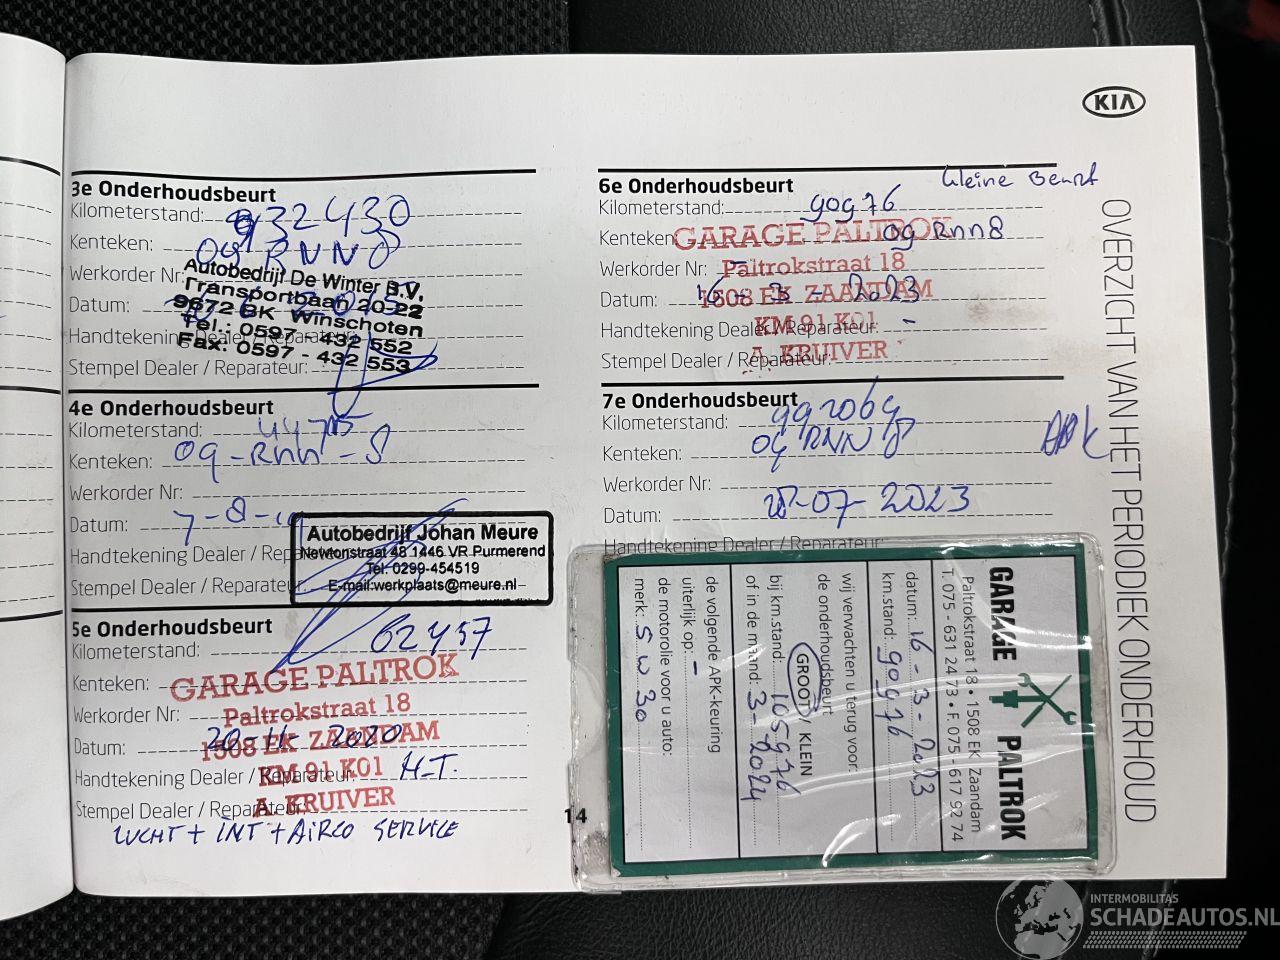 KIA
OVERZICHT VAN HET PERIODIEK ONDERHOUD
3e Onderhoudsbeurt
Kilometerstand: 932430
Kenteken: 09 RNN 8
Werkorder Nr:
Datum:
Handtekening Dealer / Reparateur:
Stempel Dealer / Reparateur:
Autobedrijf De Winter B.V.
Transportbaan 20-22
9672 BK Winschoten
Tel.: 0597 - 432 552
Fax: 0597 - 432 553
4e Onderhoudsbeurt
Kilometerstand:
Kenteken: 09-RNN-8
Werkorder Nr:
Datum: 7-8-
Handtekening Dealer / Reparateur:
Stempel Dealer / Reparateur:
Autobedrijf Johan Meure
Newtonstraat 48 1446 VR Purmerend
Tel: 0299-454519
E-mail:werkplaats@meure.nl
5e Onderhoudsbeurt
Kilometerstand: 62457
Kenteken:
Werkorder Nr:
Datum: 20-11-2020
Handtekening Dealer / Reparateur: H.T.
Stempel Dealer / Reparateur:
GARAGE PALTROK
Paltrokstraat 18
1508 EK ZAANDAM
KM 91 K01
A. KRUIVER
LUCHT + INT + AIRCO SERVICE
6e Onderhoudsbeurt Kleine Beurt
Kilometerstand: 90976
Kenteken: 09 RNN 8
Werkorder Nr: -
Datum: 16-3-2023
Handtekening Dealer / Reparateur: -
Stempel Dealer / Reparateur:
GARAGE PALTROK
Paltrokstraat 18
1508 EK ZAANDAM
KM 91 K01
A. KRUIVER
7e Onderhoudsbeurt
Kilometerstand: 992069
Kenteken: 09 RNN 8 APK
Werkorder Nr:
Datum: -07-2023
Handtekening Dealer / Reparateur:
GARAGE PALTROK
Paltrokstraat 18 • 1508 EK Zaandam
T. 075 - 631 24 73 • F. 075 - 617 92 74
datum: 16-3-2023
km.stand: 90976
wij verwachten u terug voor:
de onderhoudsbeurt GROOT / KLEIN
bij km.stand: 105976
of in de maand: 3-2024
de volgende APK-keuring
uiterlijk op: -
de motorolie voor u auto:
merk: 5W30
14
INTERMOBILITAS
SCHADEAUTOS.NL